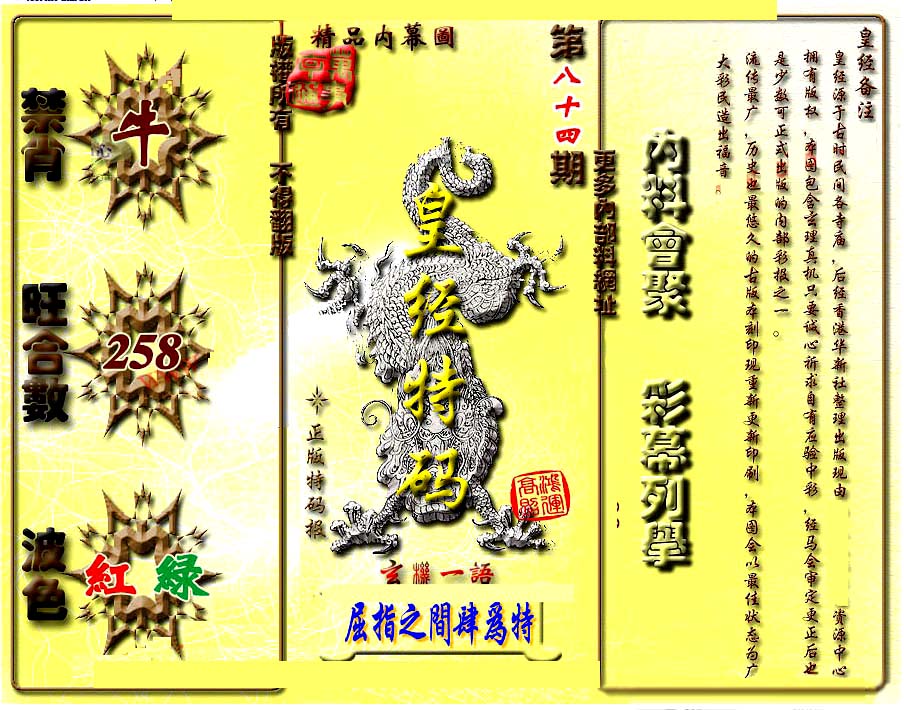 皇经备注
皇经源于古时民间各寺庙,后经香港华新社整理出版现由 资源中心
拥有版权,本图包含玄理真机只要诚心祈求自有应验中彩,经马会审定更正后也
是少数可正式出版的内部彩报之一。
流传最广,历史也最悠久的古版本刻印现重新更新印刷,本图会以最佳状态为广
大彩民造出福音
内料會聚 彩幕列舉
更多內部料網址
第八十四期
精品内幕圖
版權所有 不得翻版
皇经特码
正版特码报
鸿運高照
玄機一語
屈指之間肆爲特
禁肖
牛
旺合數
258
波色
紅 綠